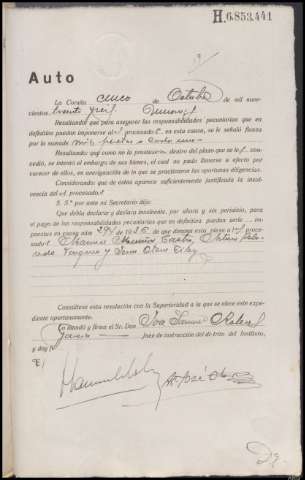 H.6.853.441
Auto
La Coruña cinco de Octubre de mil nove-
cientos treinta y seis
Resultando que para asegurar las responsabilidades pecuniarias que en
definitiva puedan imponerse al procesado en esta causa, se le señaló fianza
por la suma de mil pesetas a cada uno
Resultando que como no la prestasen, dentro del plazo que se les con-
cedió, se intentó el embargo de sus bienes, el cual no pudo llevarse a efecto por
carecer de ellos, en averiguación de lo que se practicaron las oportunas diligencias.
Considerando que de estas aparece suficientemente justificada la insol-
vencia del procesado
S. S.ª por ante el Secretario dijo:
Que debía declarar y declara insolvente, por ahora y sin perjuicio, para
el pago de las responsabilidades pecuniarias que en definitiva puedan serle im-
puestas en causa núm. 294 de 1936 de que dimana esta pieza al pro-
cesado Manuel Castro, Arturo
y Juan Otero
Consúltese esta resolución con la Superioridad a la que se eleve este expe-
diente oportunamente.
Lo mandó y firma el Sr. Don
García Juez de instrucción del distrito del Instituto,
y doy fe
José